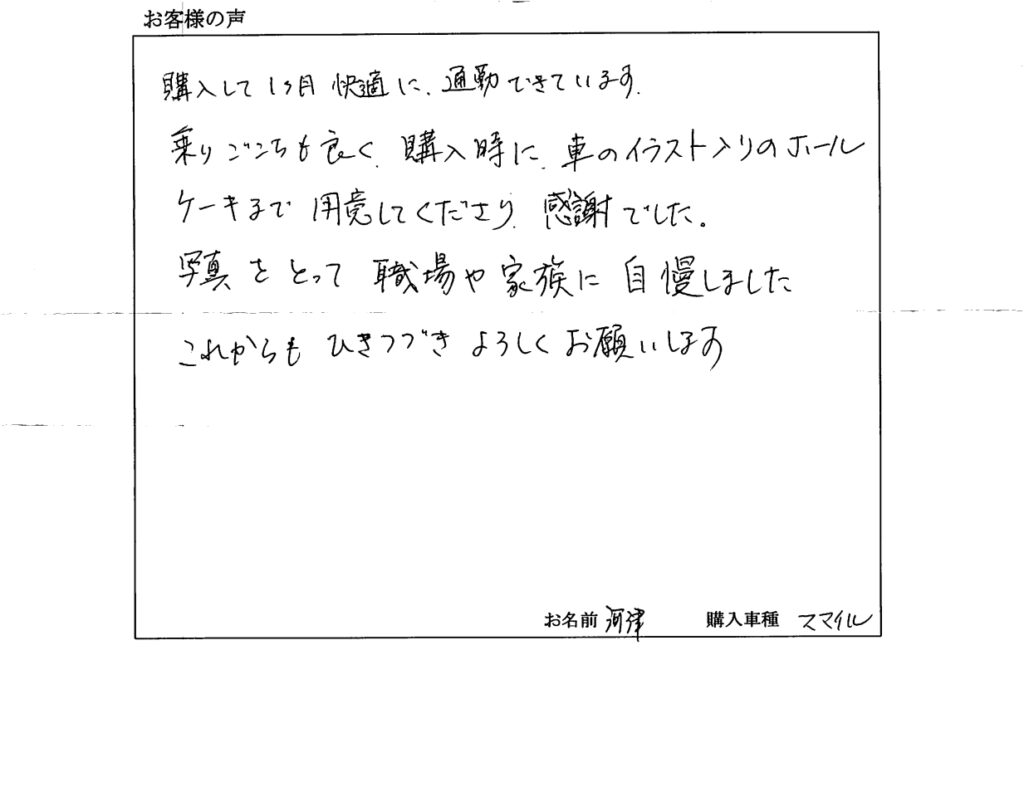 お客様の声
購入して1ヶ月 快適に、通勤できています。
乗りごこちも良く、購入時に、車のイラスト入りのホール
ケーキまで 用意してくださり、感謝でした。
写真をとって 職場や家族に 自慢しました
これからも ひきつづき よろしくお願いします
お名前 河津 購入車種 スマイル